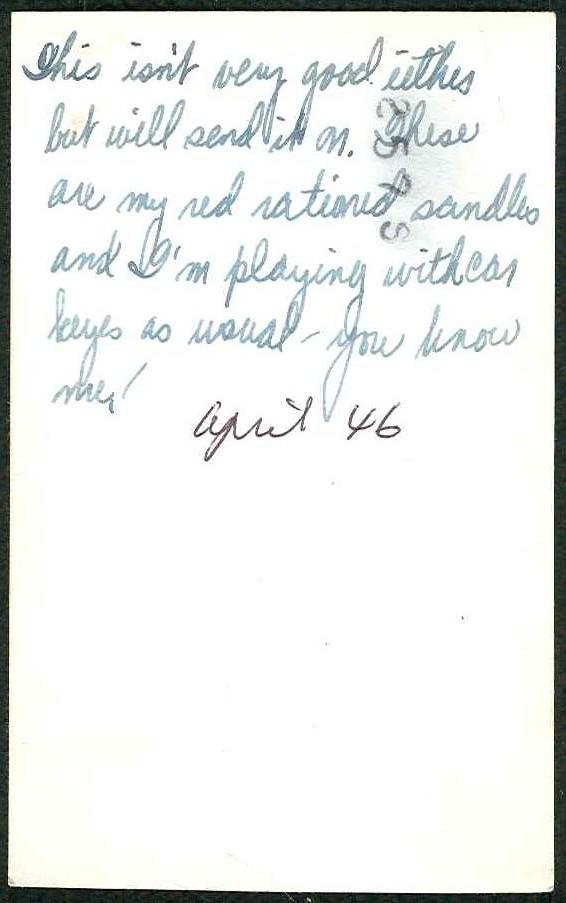 This isn't very good either
but will send it on. These
are my red rationed sandles
and I'm playing with car
keyes as usual – you know
me!
April 46